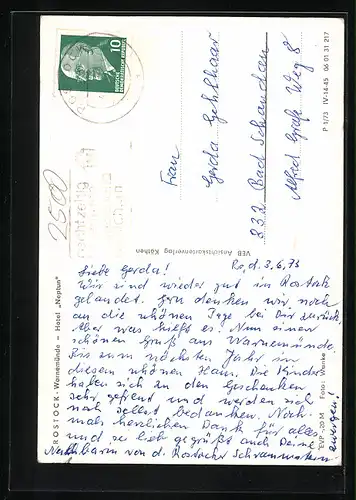 ROSTOCK-Warnemünde – Hotel „Neptun"
10
DEUTSCHE DEMOKRATISCHE REPUBLIK
2500
rechtzeitig
Frau
Gerda Gehlhaar
832 Bad Schandau
Alfred Graf Weg 8
VEB Ansichtskartenverlag Köthen
P 1/73 IV-14-45 06 01 31 217
EVP -,20 M Foto: Wanke
Ro, d. 3.6.73
Liebe Gerda!
Wir sind wieder gut in Rostock
gelandet. Gern denken wir noch
an die schönen Tage bei Dir zurück.
Aber was hilft es! Nun einen
schönen Gruß aus Warnemünde.
Bis zum nächsten Jahr in
diesem schönen Haus. Die Kinder
haben sich zu den Geschenken
sehr gefreut und werden sich
noch selbst bedanken. Noch-
mals herzlichen Dank für alles
und sei lieb gegrüßt auch Deine
Nachbarin von d. Rostocker